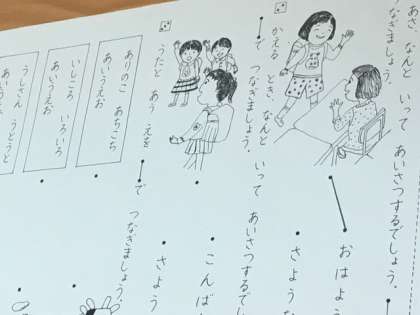 あさ、なんと いって あいさつするでしょう。
つなぎましょう。
おはよう
さような
かえる とき、なんと いって あいさつするでし
で つなぎましょう。
こんば
さよう
うたと あう えを で つなぎましょう。
ありのこ あちこち
あいうえお
いしころ いろいろ
あいうえお
うしさん うとうと